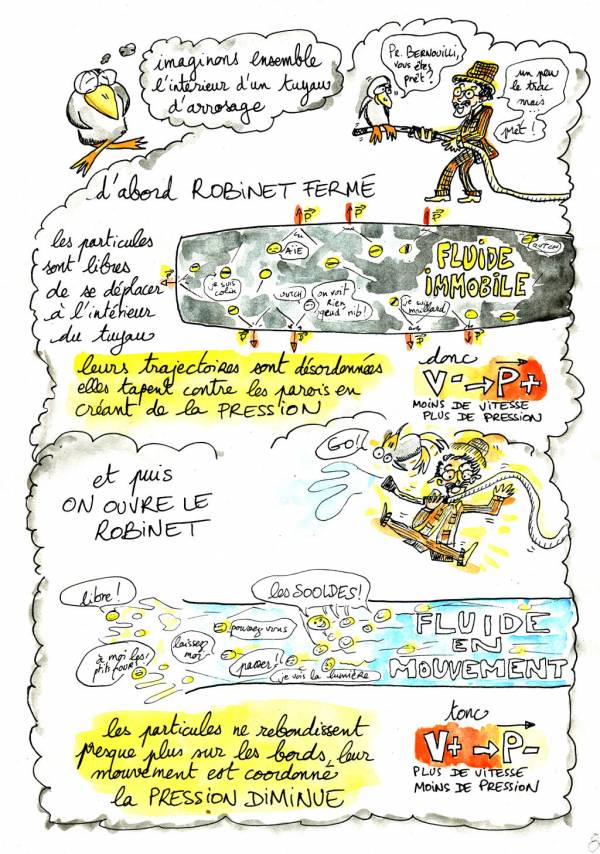 imaginons ensemble
l'intérieur d'un tuyau
d'arrosage
Pr. BERNOUILLI,
vous êtes
prêt?
un peu
le trac
mais
prêt!
d'abord ROBINET FERMÉ
les particules
sont libres
de se déplacer
à l'intérieur
du tuyau
P
P
P
P
P
P
P
AÏE
OUTCH
je suis
colin
OUTCH
on voit
rien
grud nib!
je suis
maillard
FLUIDE
IMMOBILE
leurs trajectoires sont désordonnées
elles tapent contre les parois en
créant de la PRESSION
donc
V- → P+
MOINS DE VITESSE
PLUS DE PRESSION
et puis
ON OUVRE LE
ROBINET
GO!
libre!
les SOOLDES!
poussez vous
laissez
moi
à moi les
ptits fours
passer!!
je vois la lumière
FLUIDE
EN
MOUVEMENT
les particules ne rebondissent
presque plus sur les bords, leur
mouvement est coordonné
la PRESSION DIMINUE
tonc
V+ → P-
PLUS DE VITESSE
MOINS DE PRESSION